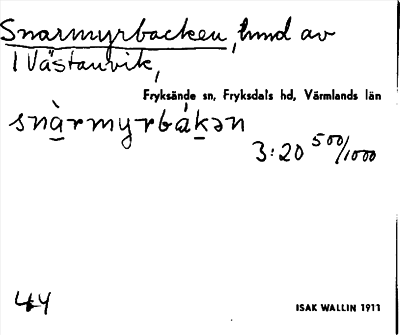 Snarmyrbacken, hmd av
1 Västanvik,
Fryksände sn, Fryksdals hd, Värmlands län
snàrmyrbákən
3:20 500/1000
44
ISAK WALLIN 1911